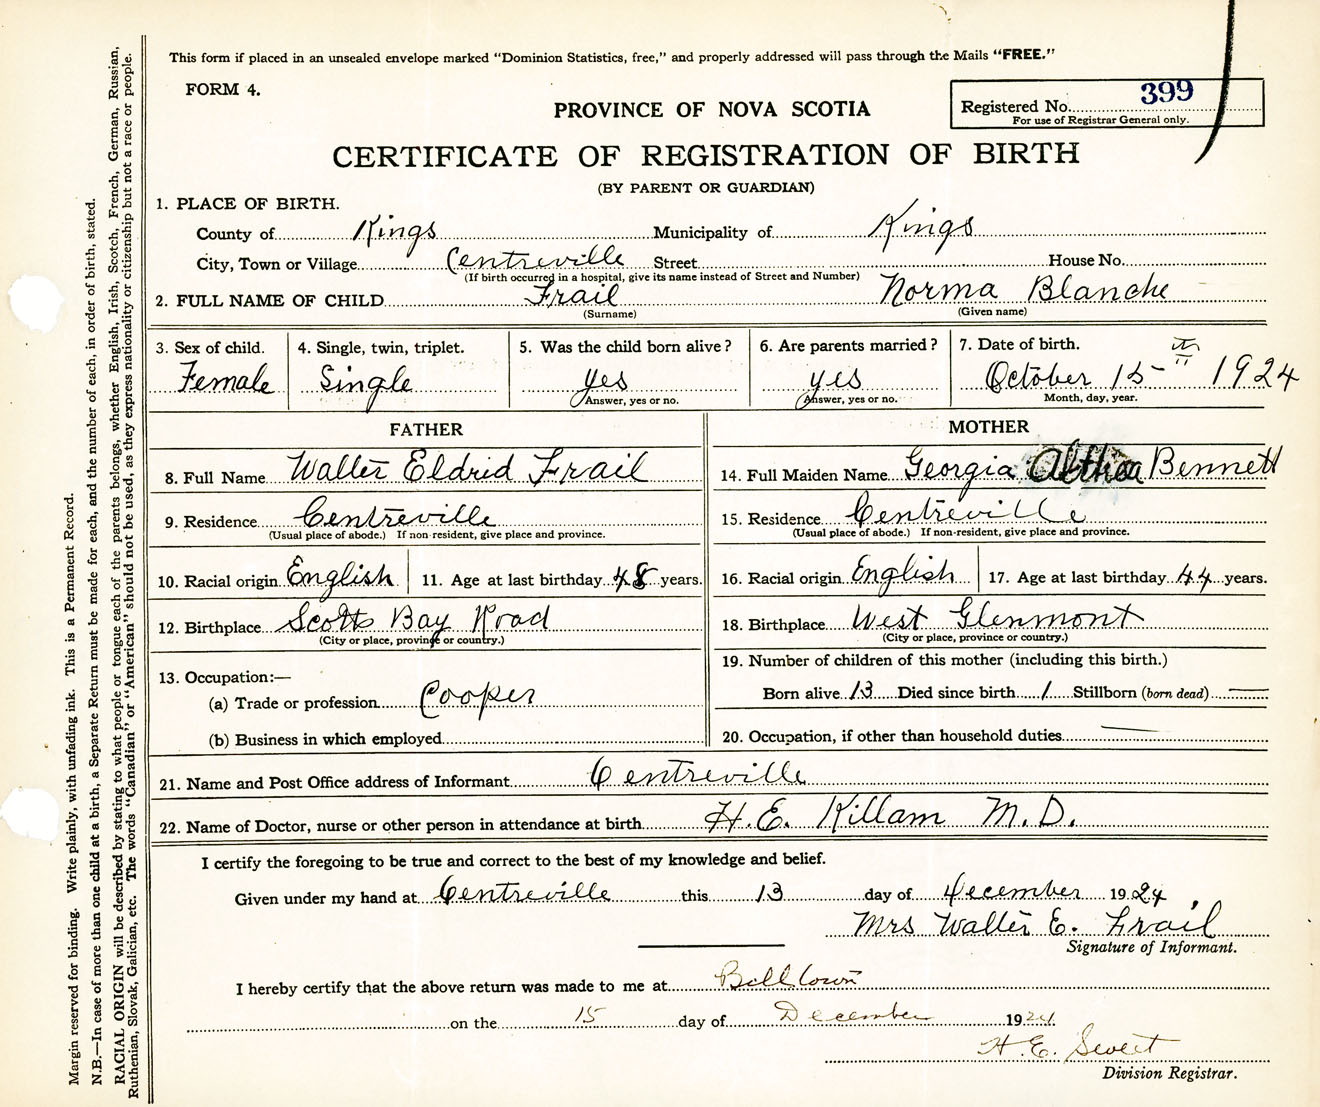 This form if placed in an unsealed envelope marked "Dominion Statistics, free," and properly addressed will pass through the Mails "FREE."
FORM 4.
PROVINCE OF NOVA SCOTIA
Registered No. 399
For use of Registrar General only.
CERTIFICATE OF REGISTRATION OF BIRTH
(BY PARENT OR GUARDIAN)
1. PLACE OF BIRTH.
County of Kings Municipality of Kings
City, Town or Village Centreville Street House No.
(If birth occurred in a hospital, give its name instead of Street and Number)
2. FULL NAME OF CHILD Frail Norma Blanche
(Surname) (Given name)
3. Sex of child. 4. Single, twin, triplet. 5. Was the child born alive? 6. Are parents married? 7. Date of birth.
Female Single yes yes October 15th 1924
Answer, yes or no. Answer, yes or no. Month, day, year.
FATHER MOTHER
8. Full Name Walter Eldrid Frail 14. Full Maiden Name Georgia Althea Bennett
9. Residence Centreville 15. Residence Centreville
(Usual place of abode.) If non-resident, give place and province. (Usual place of abode.) If non-resident, give place and province.
10. Racial origin English 11. Age at last birthday 48 years. 16. Racial origin English 17. Age at last birthday 44 years.
12. Birthplace Scotts Bay Road 18. Birthplace West Glenmont
(City or place, province or country.) (City or place, province or country.)
19. Number of children of this mother (including this birth.)
13. Occupation:—
(a) Trade or profession Cooper Born alive 13 Died since birth 1 Stillborn (born dead) —
(b) Business in which employed 20. Occupation, if other than household duties —
21. Name and Post Office address of Informant Centreville
22. Name of Doctor, nurse or other person in attendance at birth H. E. Killam M. D.
I certify the foregoing to be true and correct to the best of my knowledge and belief.
Given under my hand at Centreville this 13 day of December 1924,
Mrs Walter E. Frail
Signature of Informant.
I hereby certify that the above return was made to me at Billtown
on the 15 day of December 1924
H. E. Sweet
Division Registrar.
Margin reserved for binding. Write plainly, with unfading ink. This is a Permanent Record.
N.B.—In case of more than one child at a birth, a Separate Return must be made for each, and the number of each, in order of birth, stated.
RACIAL ORIGIN will be described by stating to what people or tongue each of the parents belongs, whether English, Irish, Scotch, French, German, Russian,
Ruthenian, Slovak, Galician, etc. The words "Canadian" or "American" should not be used, as they express nationality or citizenship but not a race or people.